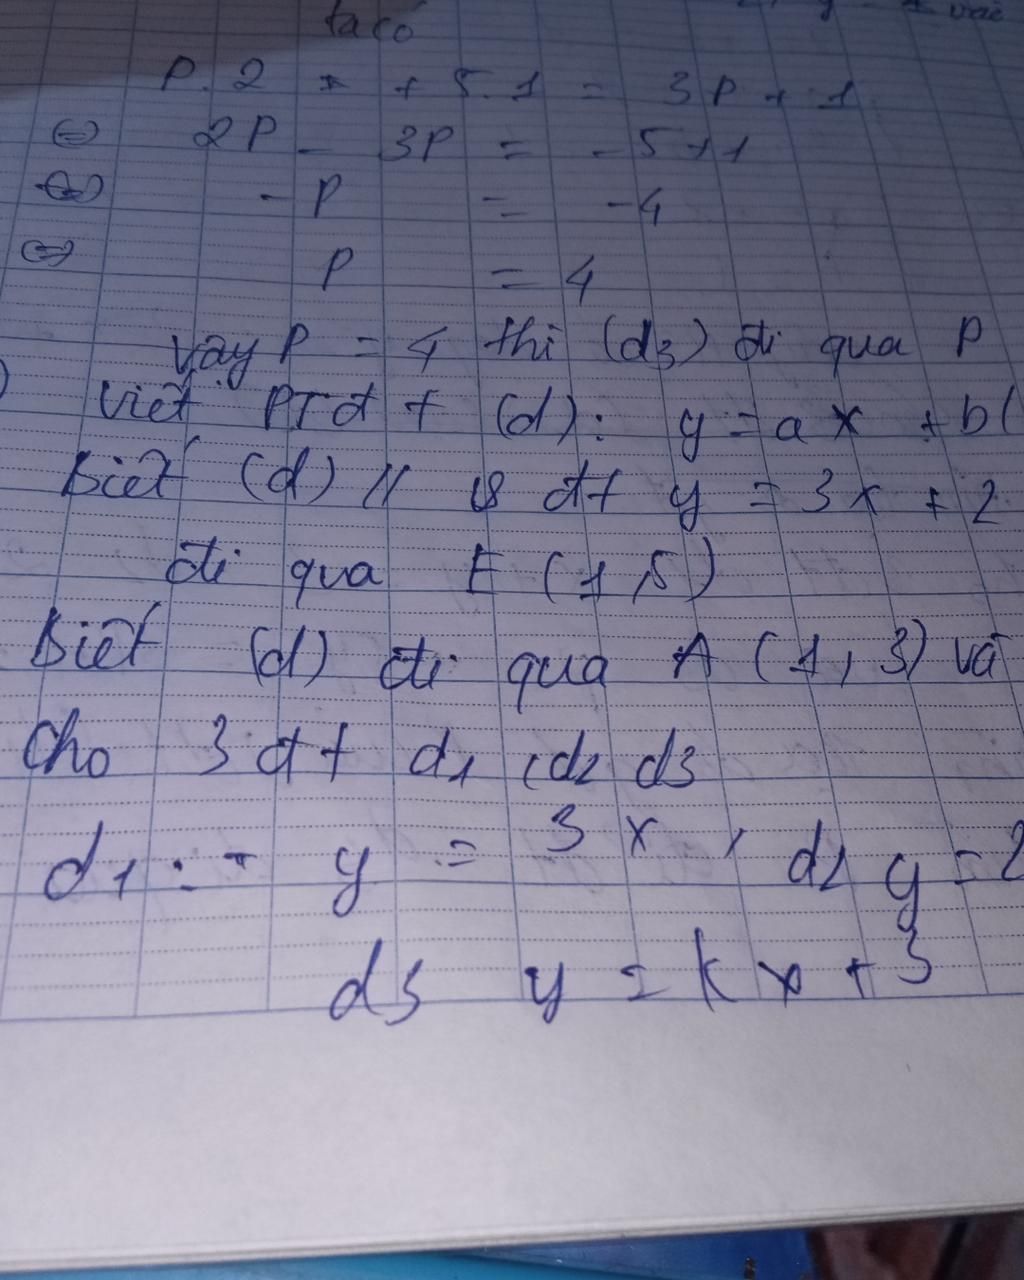 ta có
P. 2 + 5. 1 = 3P + 1
⇔ 2P - 3P = -5 + 1
⇔ - P = -4
⇔ P = 4
Vậy P = 4 thì (d3) đi qua P
Viết PTđt (d): y = ax + b(
Biết (d) // đt y = 3x + 2
đi qua E (1,5)
Biết (d) đi qua A (1, 3) và
Cho 3 đt d1 d2 d3
d1: y = 3x, d2 y = 2
d3 y = kx + 3